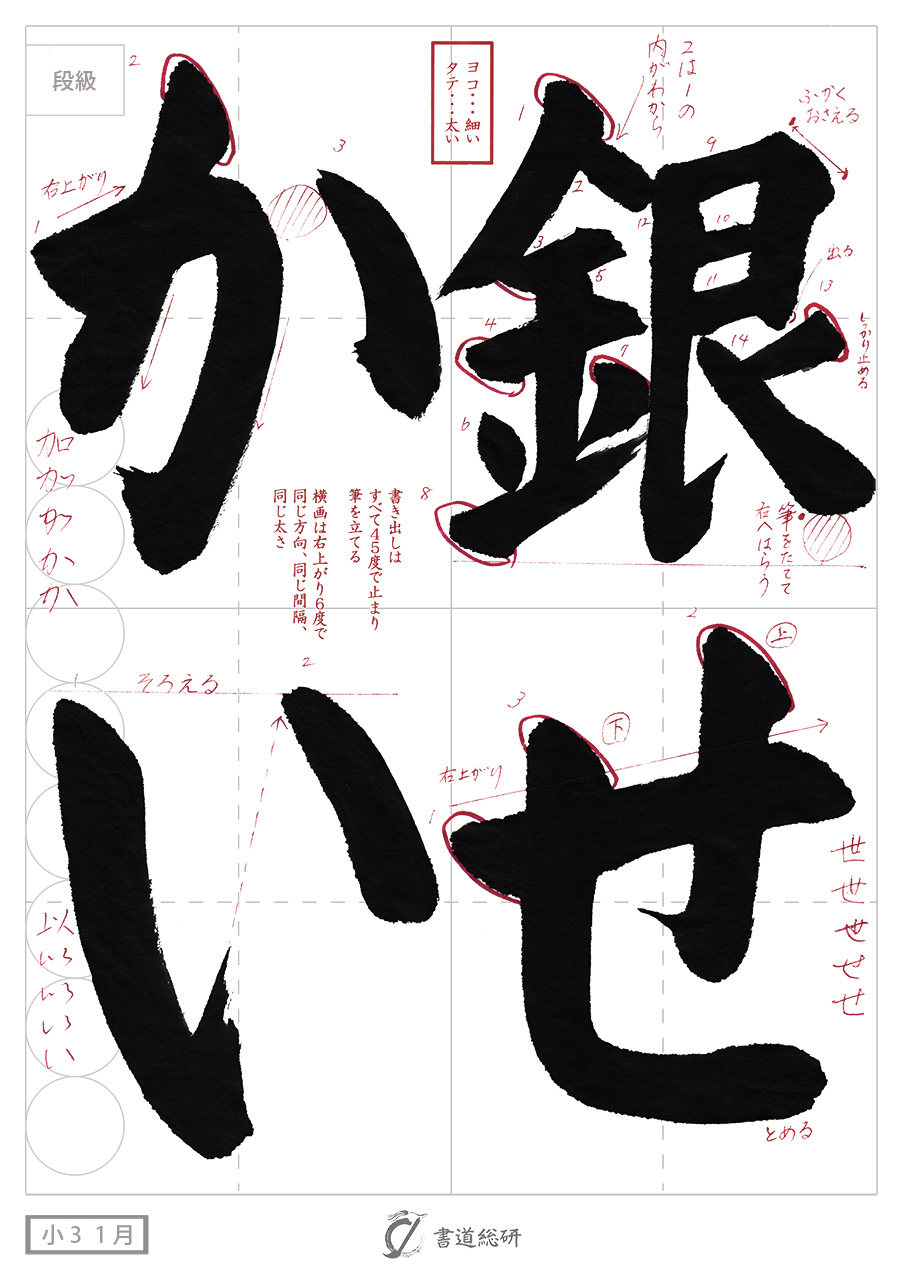 銀
せ
か
い
段級
ヨコ…細い
タテ…太い
2は1の
内がわから
ふかく
おさえる
右上がり
出る
しっかり止める
筆をたてて
右へはらう
書き出しは
すべて45度で止まり
筆を立てる
横画は右上がり6度で
同じ方向、同じ間隔、
同じ太さ
そろえる
上
下
右上がり
とめる
加
か
世
せ
以
い
小3 1月
書道総研